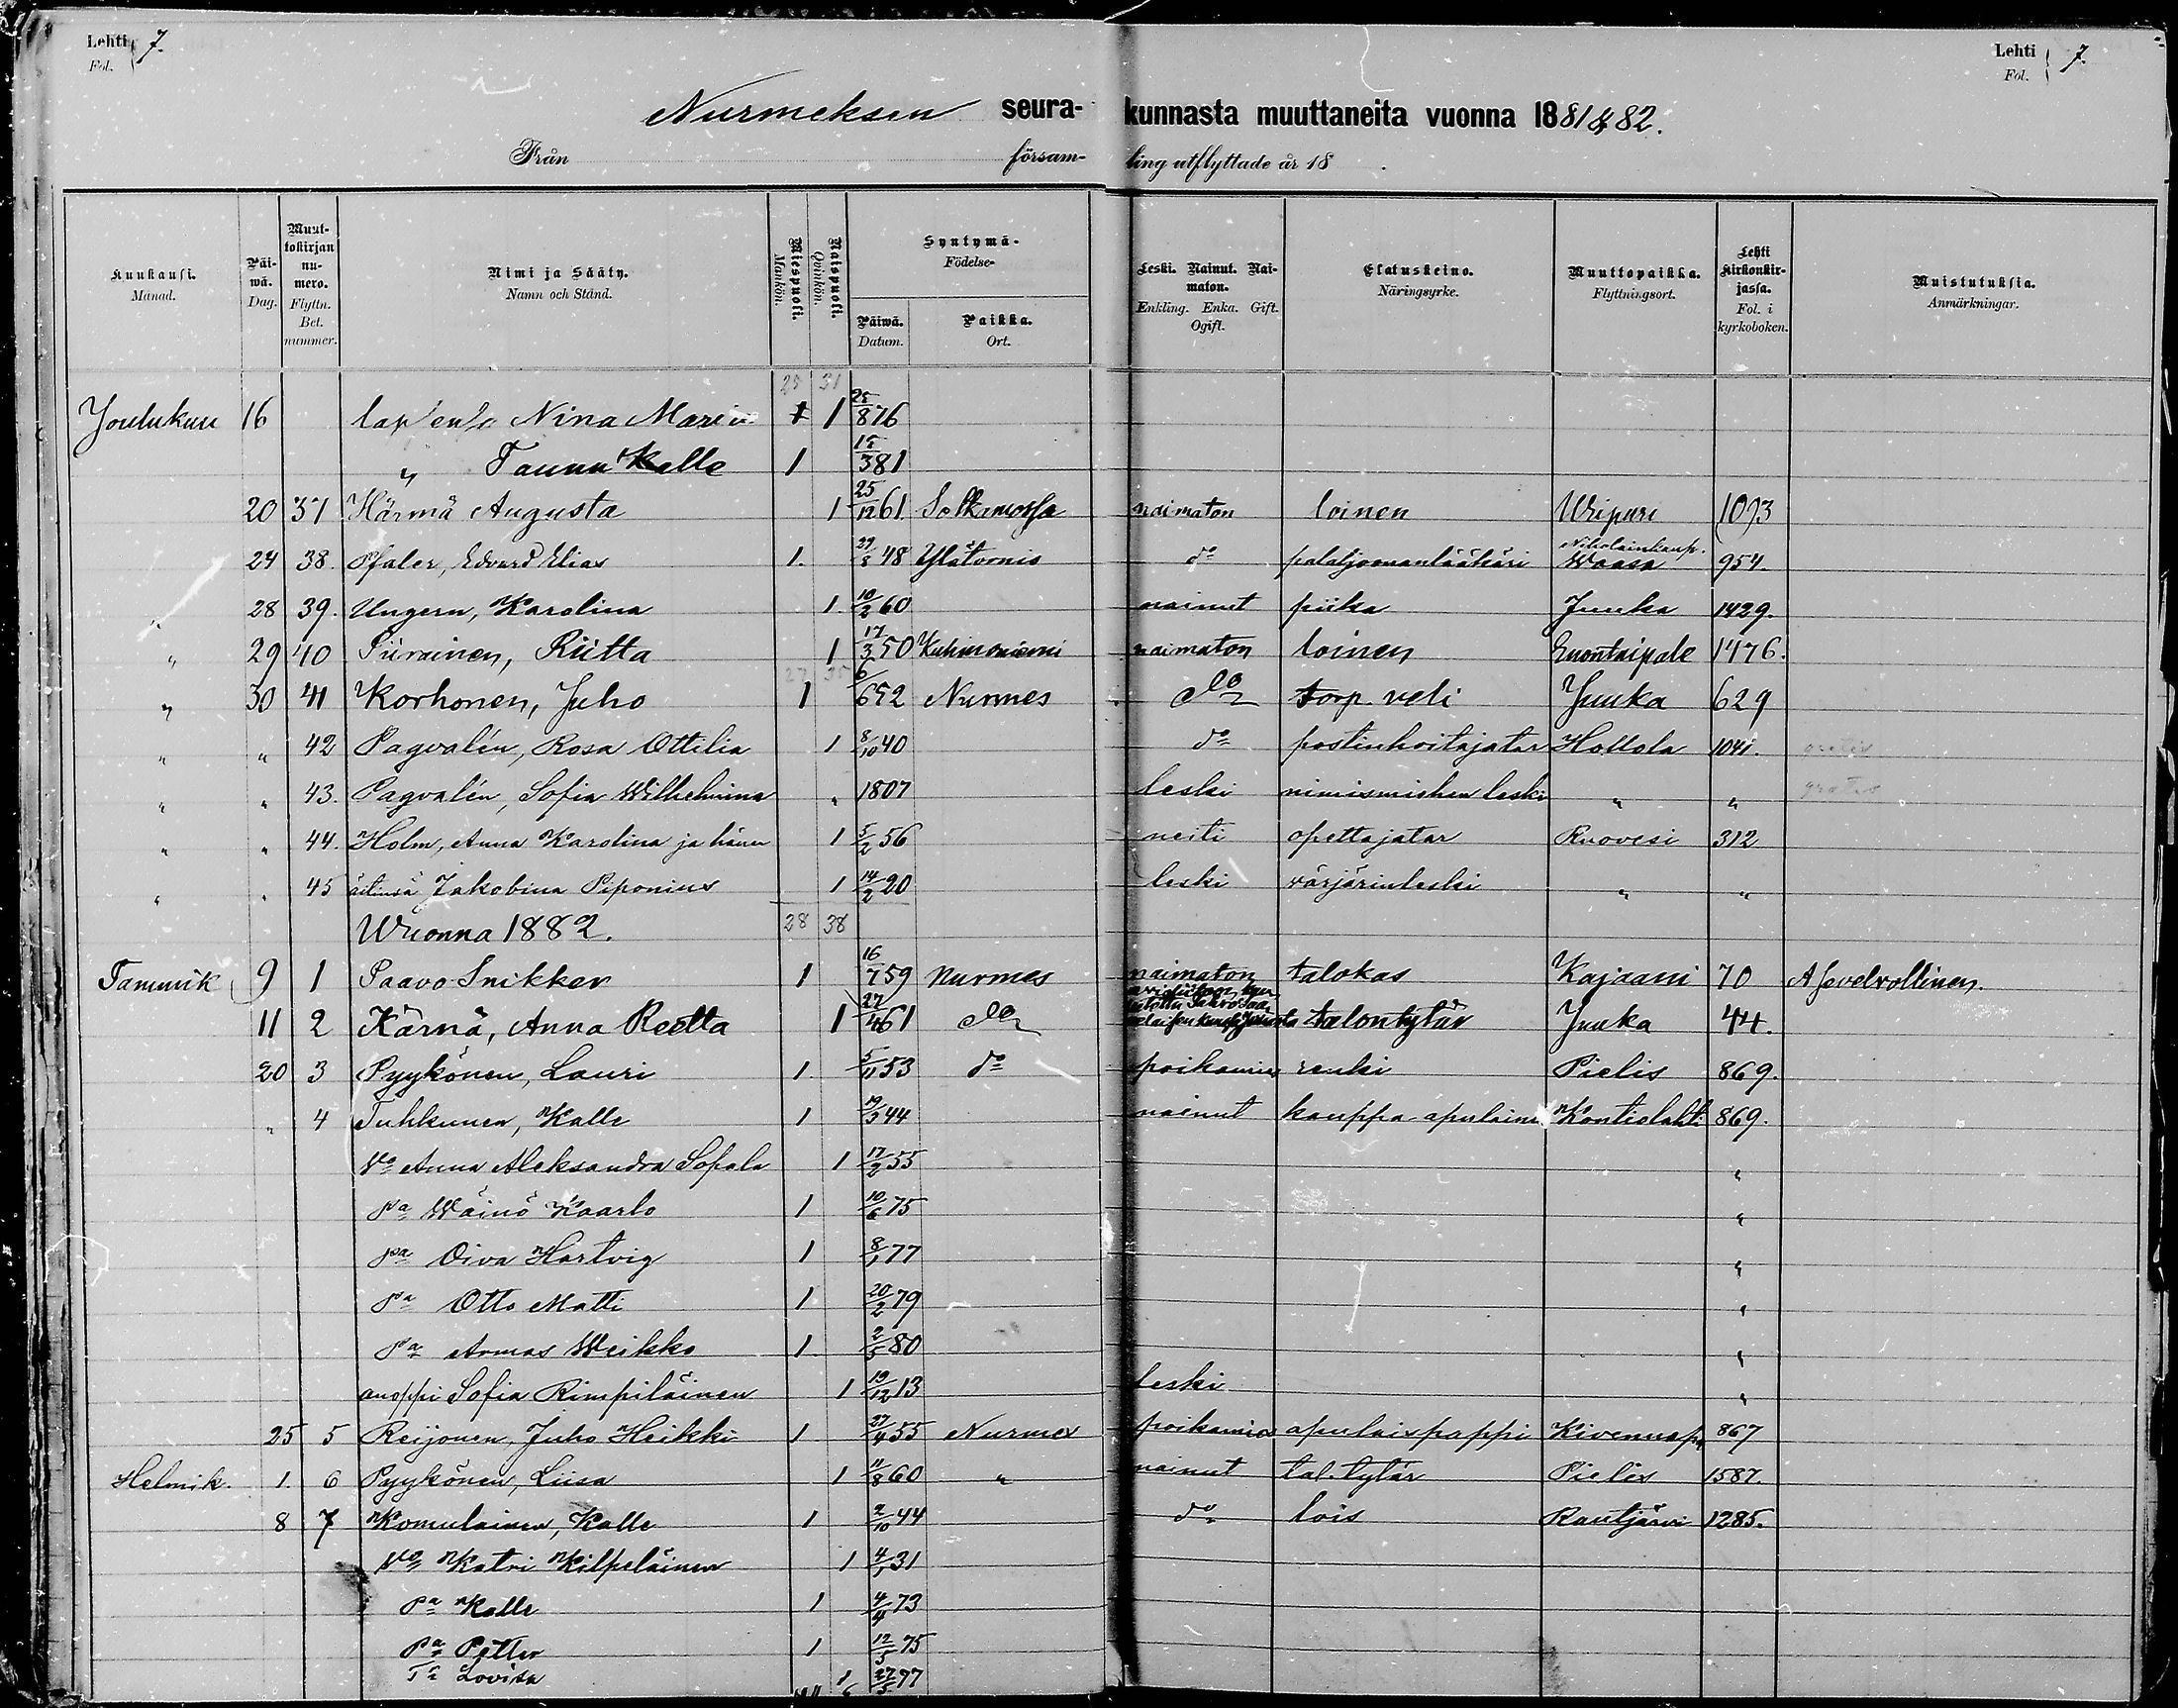 Lehti 7. Lehti 7.
Fol. Fol.
Nurmeksen seura- kunnasta muuttaneita vuonna 1881 & 82.
Från försam- ling utflyttade år 18 .
Kuukausi. Månad. Päi-wä. Dag. Muut-tokirjan nu-mero. Flyttn. Bet. nummer. Nimi ja Sääty. Namn och Stånd. Miespuoli. Mankön. Naispuoli. Qvinkön. Syntymä- Födelse- Päiwä. Datum. Paikka. Ort. Leski. Nainut. Nai-maton. Enkling. Enka. Gift. Ogift. Elatuskeino. Näringsyrke. Muuttopaikka. Flyttningsort. Lehti kirkonkir-jassa. Fol. i kyrkoboken. Muistutuksia. Anmärkningar.
25 31
Joulukuu 16 Nina Maria 1 1 25/8 76
" Taunu Kalle 1 15/3 81
20 37 Härmä Augusta 1 25/12 61 Sotkamossa naimaton loinen Wiipuri 1093
24 38. Pfaler, Edvard Elias 1. 29/8 48 Ylitornio do Waasa 954.
" 28 39. Ungern, Karolina 1 10/2 60 nainut piika Juuka 1429.
" 29 40 Piirainen, Riitta 1 17/3 50 Kuhmoniemi naimaton loinen Enontaipale 1476.
27 35
" 30 41 Korhonen, Juho 1 6/6 52 Nurmes do torp. veli Juuka 629
" " 42 Pagvalén, Rosa Ottilia 1 8/10 40 do postinhoitajatar Hollola 1041. gratis
" " 43. Pagvalén, Sofia Wilhelmina " 1807 leski nimismiehen leski " " gratis
" " 44. Holm, Anna Karolina ja hänen 1 5/2 56 neiti opettajatar Ruovesi 312
" " 45 äitinsä Jakobina Piponius 1 14/2 20 leski värjärinleski " "
Wuonna 1882. 28 38
Tammik 9 1 Paavo Snikker 1 16/7 59 Nurmes naimaton talokas Kajaani 70 Asevelvollinen.
11 2 Kärnä, Anna Reetta 1 27/4 61 do talontytär Juuka 44.
20 3 Pyykönen, Lauri 1. 5/11 53 do poikamies renki Pielis 869.
" 4 Tuhkunen, Kalle 1 19/3 44 nainut kauppa apulainen Kontiolahti 869.
Vo Anna Aleksandra Sopala 1 17/2 55 "
pa Wäinö Kaarlo 1 10/6 75 "
pa Oiva Hartvig 1 8/1 77 "
pa Otto Matti 1 20/2 79 "
pa Armas Weikko 1. 2/5 80 "
anoppi Sofia Rimpiläinen 1 19/12 13 leski "
25 5 Reijonen, Juho Heikki 1 27/4 55 Nurmes poikamies apulaispappi Kivennapa 867
Helmik. 1. 6 Pyykönen, Liisa 1 11/8 60 " nainut tal. tytär Pielis 1587.
8 7 Komulainen, Kalle 1 2/10 44 do lois Rautjärvi 1285.
Vo Katri Kilpeläinen 1 4/1 31
pa Kalle 1 4/4 73
pa Petter 1 12/5 75
Tr Lovisa 1 27/5 77